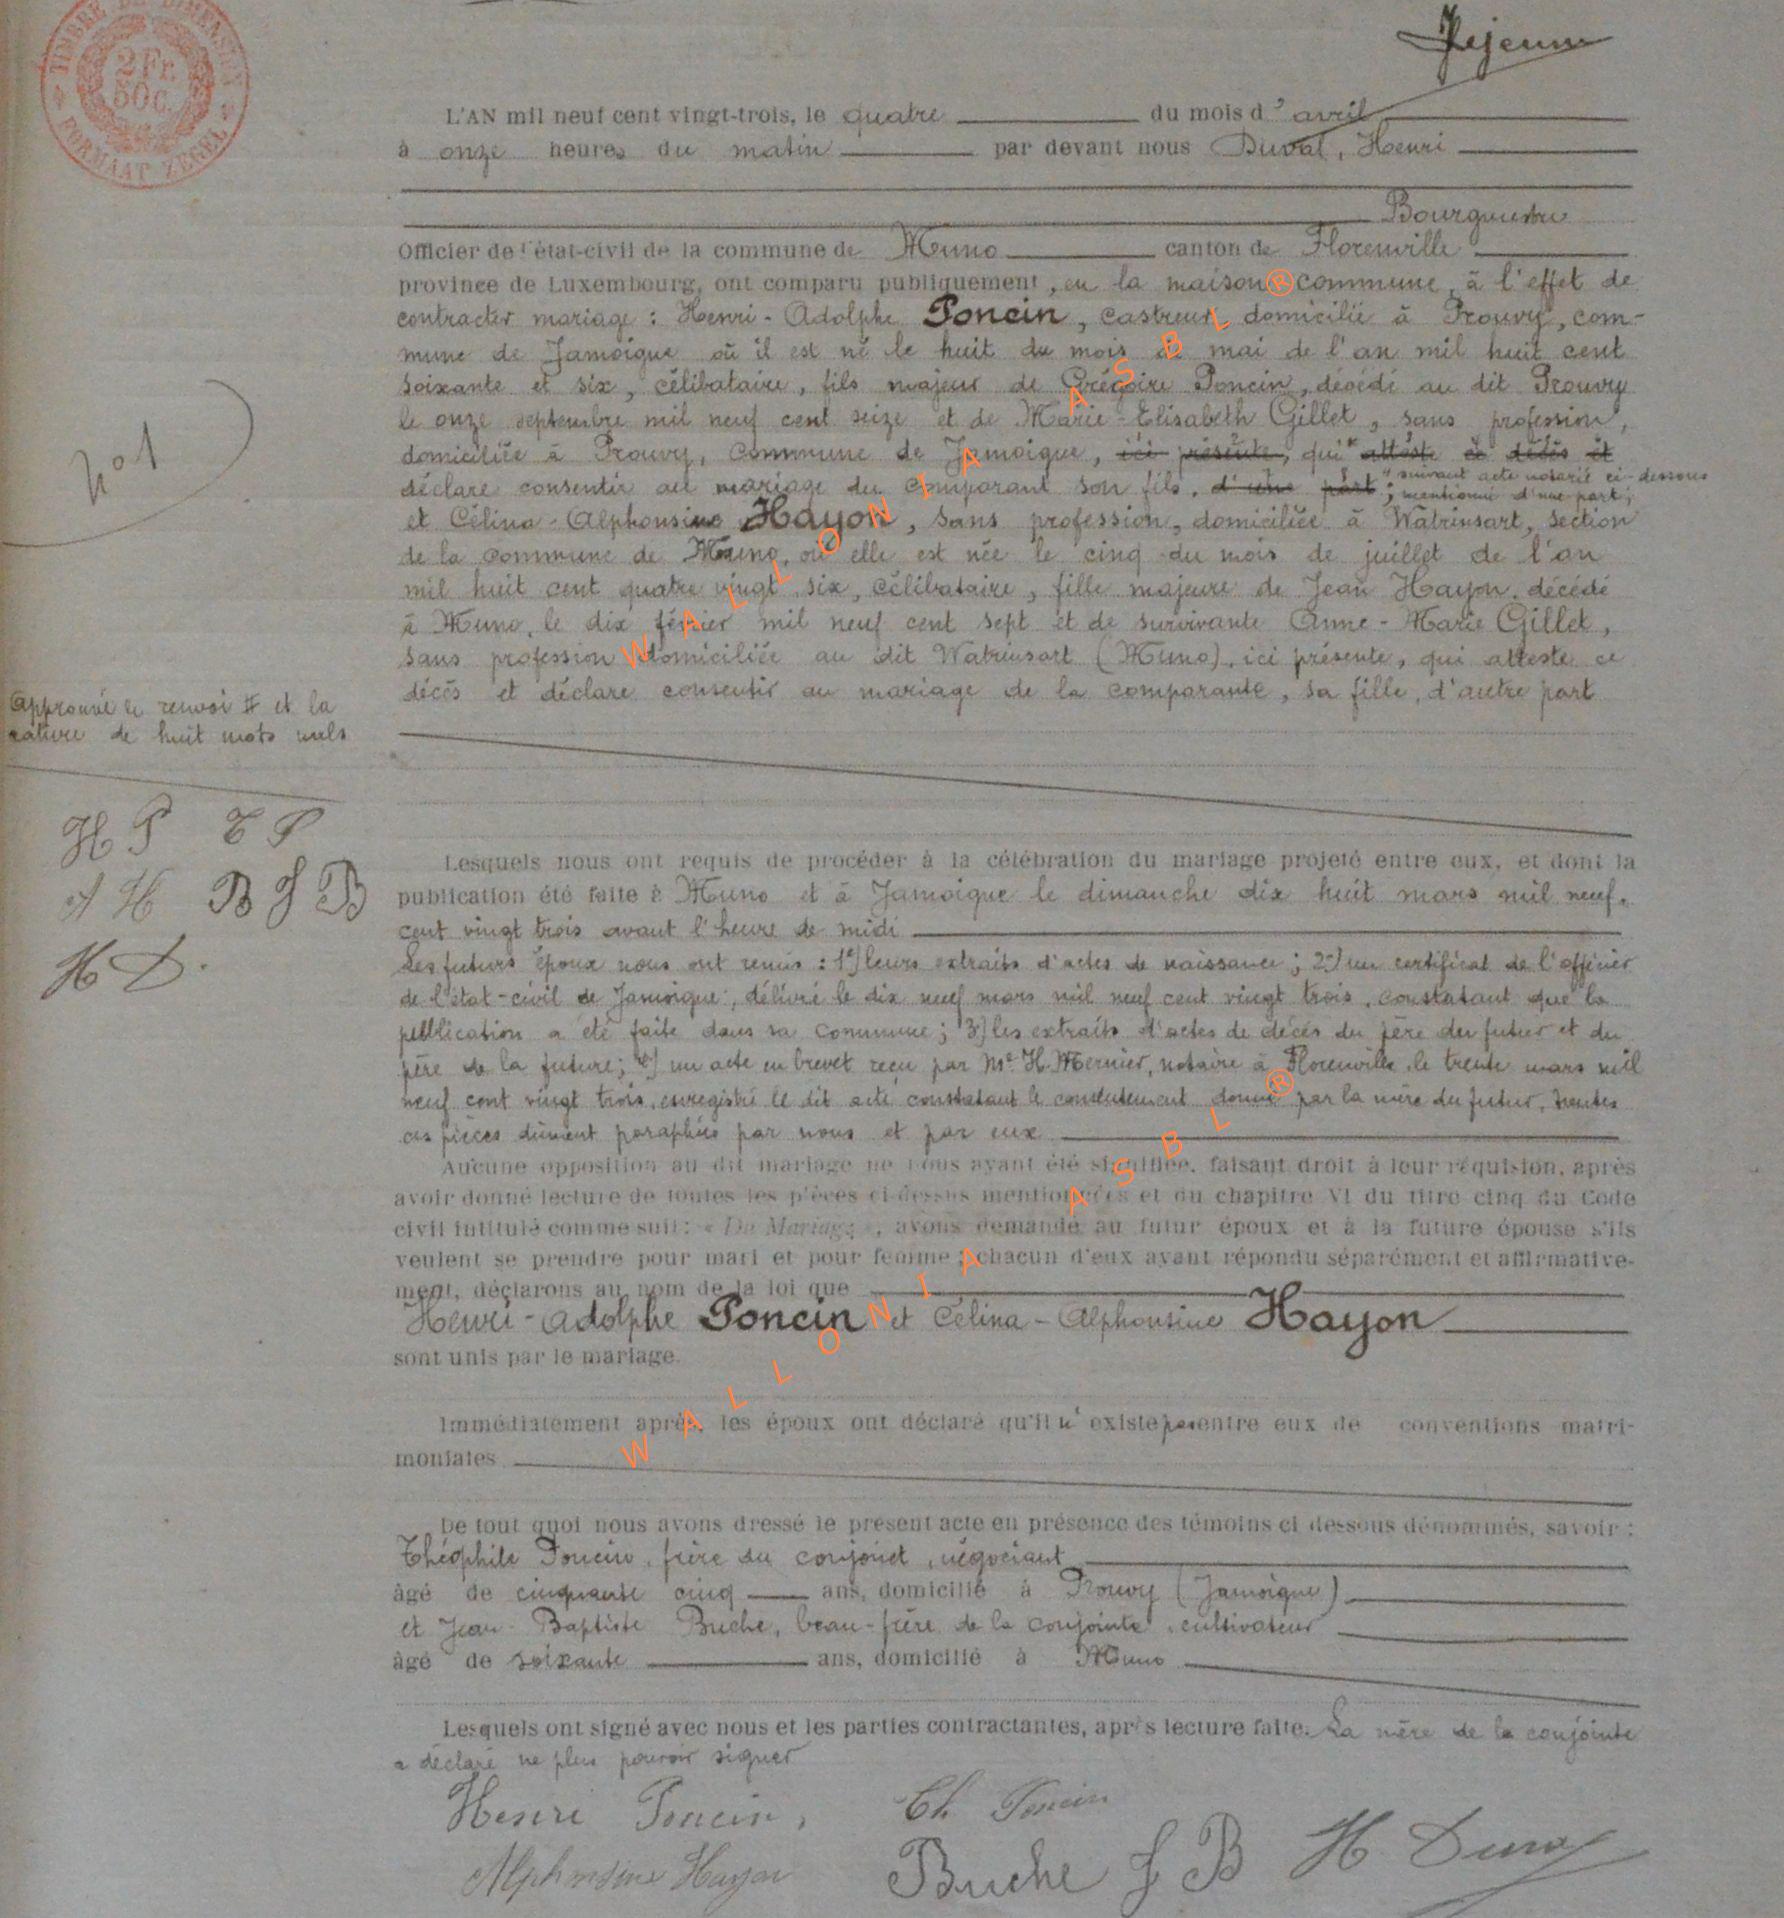 TIMBRE DE DIMENSION
2Fr.
50c.
FORMAAT ZEGEL
Lejeune
L'AN mil neuf cent vingt-trois, le quatre du mois d'avril
à onze heures du matin par devant nous Duval, Henri
Bourgmestre
Officier de l'état-civil de la commune de Muno canton de Florenville
province de Luxembourg, ont comparu publiquement, en la maison commune, à l'effet de
contracter mariage : Henri-Adolphe Poncin, castreur, domicilié à Prouvy, com-
mune de Jamoigne où il est né le huit du mois de mai de l'an mil huit cent
soixante et six, célibataire, fils majeur de Grégoire Poncin, décédé au dit Prouvy
le onze septembre mil neuf cent seize et de Marie-Elisabeth Gillet, sans profession,
domiciliée à Prouvy, commune de Jamoigne, ici présente, qui atteste ce décès et
déclare consentir au mariage du comparant son fils, d'une part ; suivant acte notarié ci-dessous
mentionné d'une part ;
et Célina-Alphonsine Hayon, sans profession, domiciliée à Watrinsart, section
de la commune de Muno, où elle est née le cinq du mois de juillet de l'an
mil huit cent quatre vingt six, célibataire, fille majeure de Jean Hayon, décédé
à Muno, le dix février mil neuf cent sept et de survivante Anne-Marie Gillet,
sans profession domiciliée au dit Watrinsart (Muno), ici présente, qui atteste ce
décès et déclare consentir au mariage de la comparante, sa fille, d'autre part
n° 1
Approuvé le renvoi # et la
rature de huit mots nuls
H P T P
A H B J B
H D.
Lesquels nous ont requis de procéder à la célébration du mariage projeté entre eux, et dont la
publication été faite à Muno et à Jamoigne le dimanche dix huit mars mil neuf
cent vingt trois avant l'heure de midi
Les futurs époux nous ont remis : 1°) leurs extraits d'actes de naissance ; 2°) un certificat de l'officier
de l'état-civil de Jamoigne, délivré le dix neuf mars mil neuf cent vingt trois, constatant que la
publication a été faite dans sa commune ; 3°) les extraits d'actes de décès du père du futur et du
père de la future ; 4°) un acte en brevet reçu par Me H. Mernier, notaire à Florenville, le trente mars mil
neuf cent vingt trois, enregistré le dit acte constatant le consentement donné par la mère du futur, toutes
ces pièces dûment paraphées par nous et par eux
Aucune opposition au dit mariage ne nous ayant été signifiée, faisant droit à leur réquisition, après
avoir donné lecture de toutes les pièces ci-dessus mentionnées et du chapitre VI du titre cinq du Code
civil intitulé comme suit : « Du Mariage », avons demandé au futur époux et à la future épouse s'ils
veulent se prendre pour mari et pour femme ; chacun d'eux ayant répondu séparément et affirmative-
ment, déclarons au nom de la loi que
Henri-Adolphe Poncin et Célina-Alphonsine Hayon
sont unis par le mariage.
Immédiatement après, les époux ont déclaré qu'il n'existe pas entre eux de conventions matri-
moniales
De tout quoi nous avons dressé le présent acte en présence des témoins ci dessous dénommés, savoir :
Théophile Poncin, frère du conjoint, négociant
âgé de cinquante cinq ans, domicilié à Prouvy (Jamoigne)
et Jean-Baptiste Buche, beau-frère de la conjointe, cultivateur
âgé de soixante ans, domicilié à Muno
Lesquels ont signé avec nous et les parties contractantes, après lecture faite. La mère de la conjointe
a déclaré ne plus pouvoir signer
Henri Poncin, Th Poncin
Alphonsine Hayon Buche J B H Duval
WALLONIA ASBL ®
WALLONIA ASBL ®